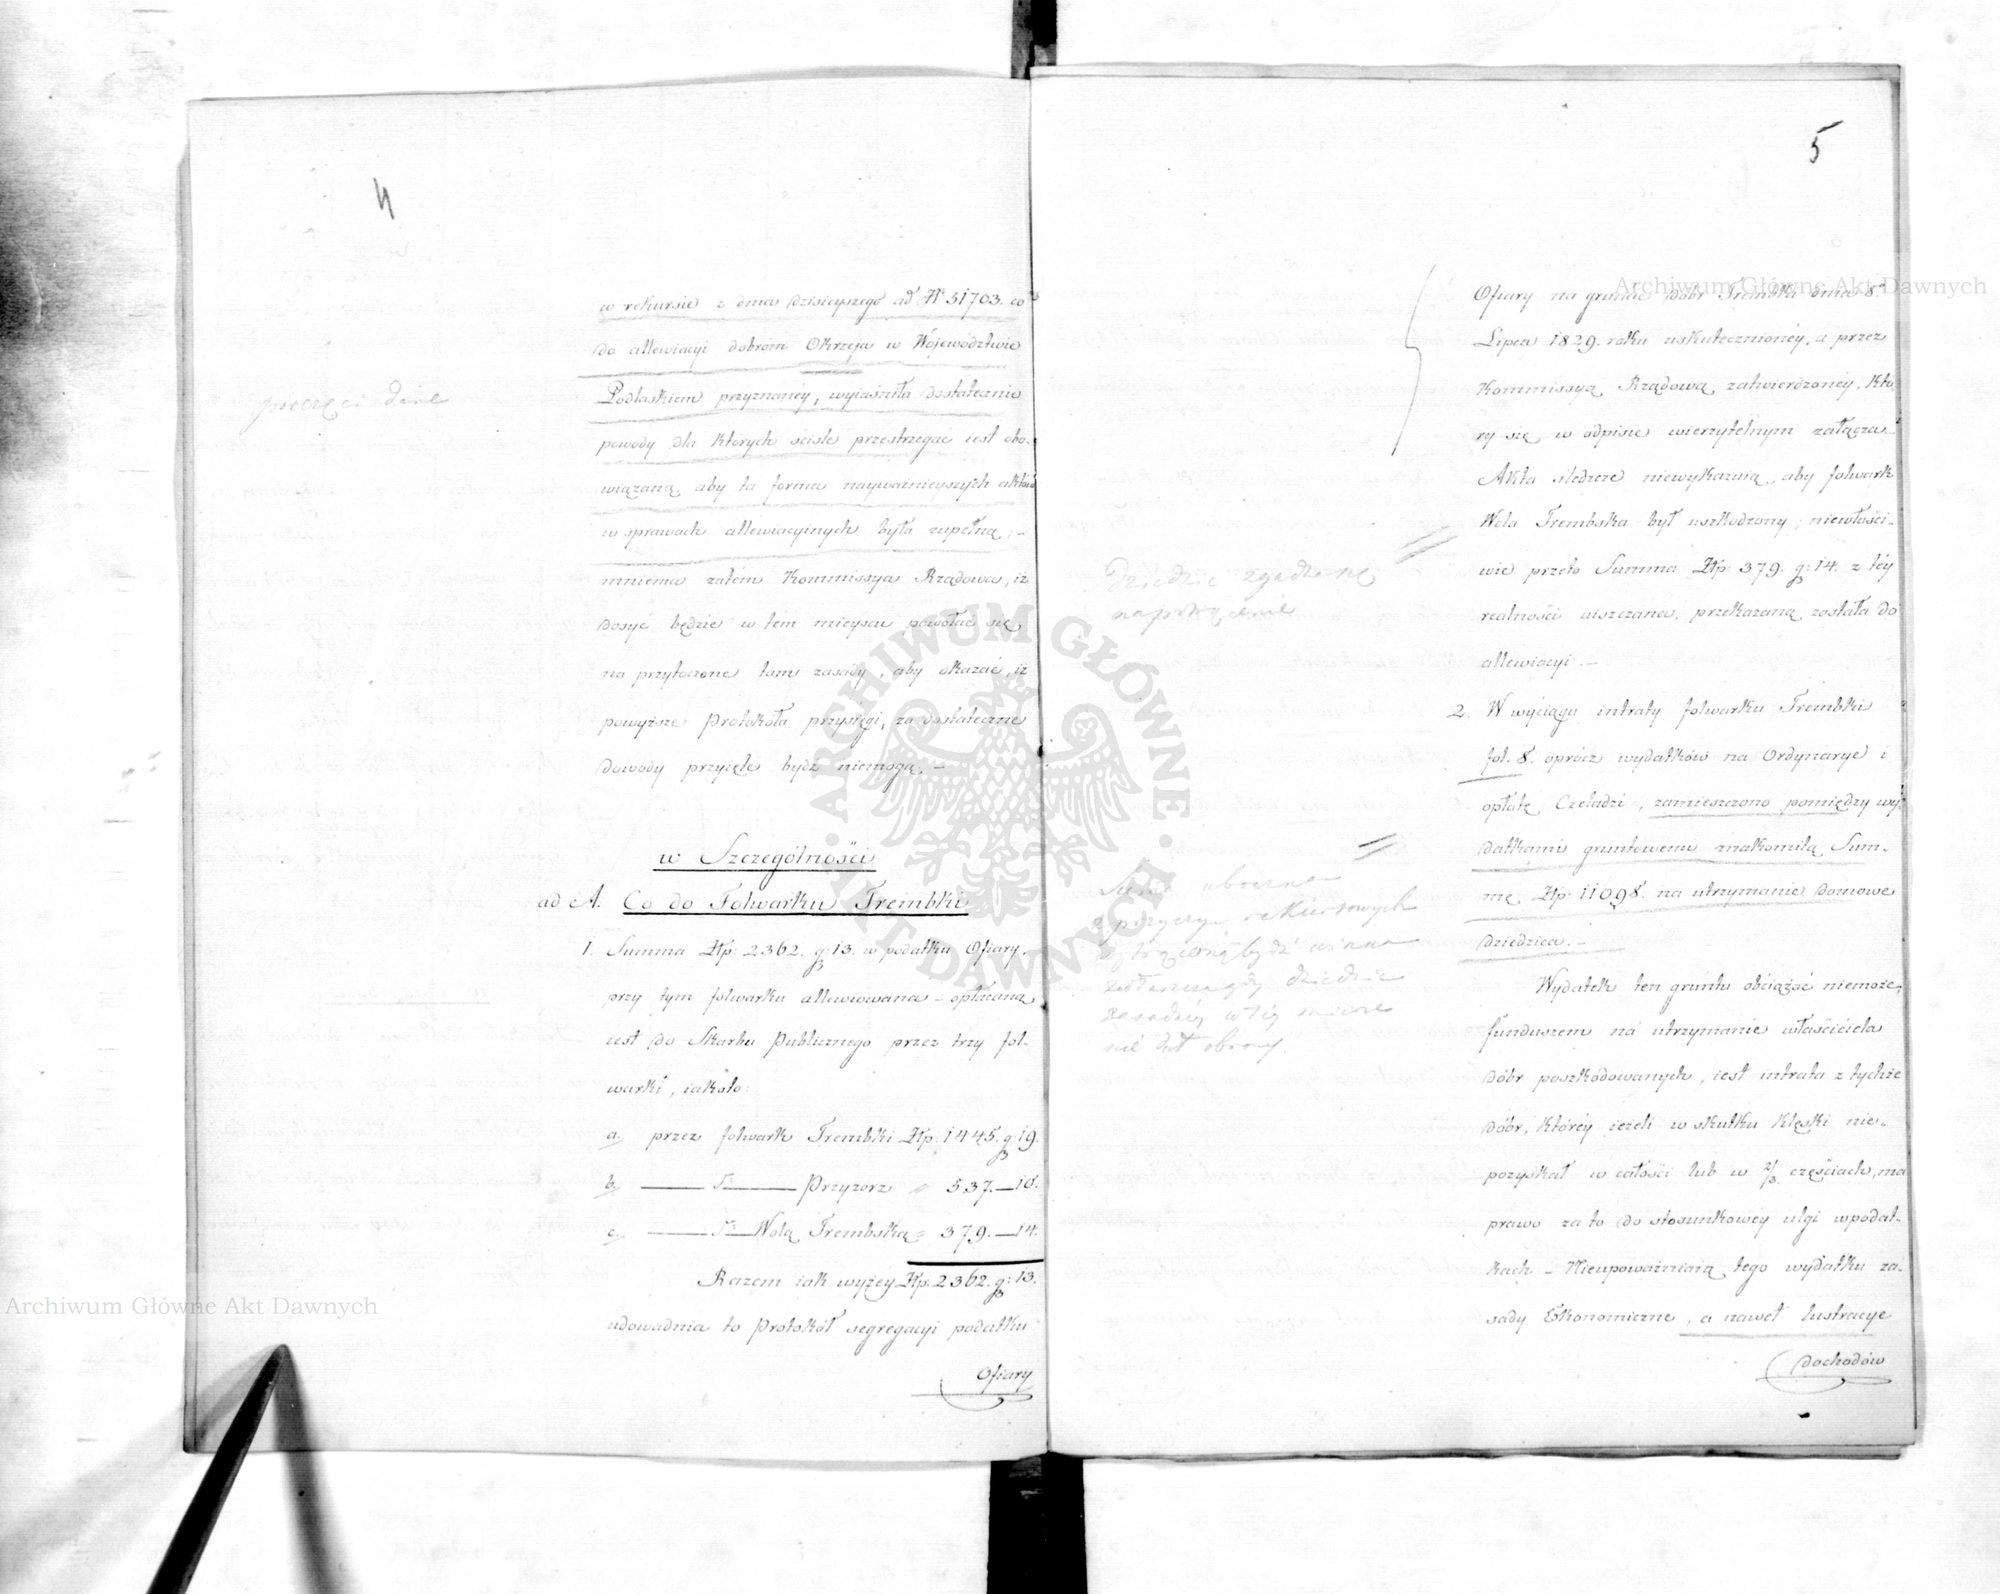 4
w rekursie z dnia dzisieyszego ad № 51703. co
do allewiacyi dobrom Okrzeja w Województwie
Podlaskiem przyznanéy, wyiaśniła dostatecznie
powody dla których ściśle przestrzegać iest obo-
wiązaną, aby ta forma nayważnieyszych aktów
w sprawach allewiacyinych była zupełną; –
mniema zatém Kommissya Rządowa, iż
dosyć będzie w tém mieyscu powołać się
na przytoczone tam zasady, aby okazać, iż
powyższe Protokóła przysięgi, za dostateczne
dowody przyięte bydź niemogą. –
w Szczególności
ad A. Co do Folwarku Trembki
1. Summa Złp: 2362. g: 13. w podatku Ofiary,
przy tym folwarku allewiowana – opłacaną
iest do Skarbu Publicznego przez trzy fol-
warki, iakoto:
a. przez folwark Trembki Złp: 1445. g: 19.
b. — — Przyzorz " 537. — 10.
c. — — Wolą Trembską = 379. — 14.
Razem iak wyżéy Złp. 2362. g: 13.
udowadnia to Protokół segregacyi podatku
Ofiary
5
Ofiary na gruncie dóbr Trembki dnia 8.
Lipca 1829. roku uskutecznionéy, a przez
Kommissyą Rządową zatwierdzonéy, któ
ry się w odpisie wierzytelnym załącza. –
Akta śledcze niewykazuią, aby folwark
Wola Trembska był uszkodzony; niewłaści-
wie przeto Summa Złp: 379. g: 14. z téy
realności uiszczana, przekazaną została do
allewiacyi. –
2. W wyciągu intraty folwarku Trembki
fol. 8. oprócz wydatków na Ordynarye i
opłatę Czeladzi, zamieszczono pomiędzy wy-
datkami gruntowemi znakomitą Sum-
mę Złp: 11098. na utrzymanie domowe
dziedzica. –
Wydatek ten gruntu obciążać niemoże,
funduszem na utrzymanie właściciela
dóbr poszkodowanych, iest intrata z tychże
dóbr, któréy ieżeli w skutku klęski nie-
pozyskał w całości lub w 2/3. częściach, ma
prawo za to do stosunkowéy ulgi w podat-
kach – Nieupoważniaią tego wydatku za-
sady Ekonomiczne, a nawet lustracye
dochodów
Dziedzic zgadza się
na potrącenie
zasadzie w téy mierze
nie był obrony.
Archiwum Główne Akt Dawnych
Archiwum Główne Akt Dawnych
ARCHIWUM GŁÓWNE · AKT DAWNYCH ·